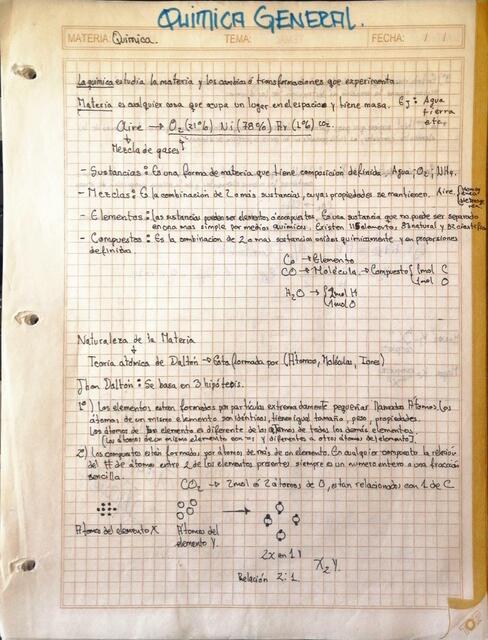 QUIMICA GENERAL.
MATERIA: Quimica. TEMA: FECHA: / /
La química estudia la materia y los cambios ó transformaciones que experimenta.
Materia es cualquier cosa que ocupa un lugar en el espacio y tiene masa. Ej: Agua
tierra
etc.
Aire → O2 (21%) Ni (78%) Ar (1%) CO2.
Mezcla de gases
- Sustancias: Es una forma de materia que tiene composición definida. Agua, O2, NH4.
- Mezclas: Es la combinación de 2 o más sustancias, cuyas propiedades se mantienen. Aire
- Elementos: las sustancias pueden ser elementos ó compuestos. Es una sustancia que no puede ser separado
en una mas simple por medios químicos. Existen 115 elementos. 83 natural y 32 científicos
- Compuestos: Es la combinación de 2 o mas sustancias unidas químicamente y en proporciones
definidas.
Co → Elemento
CO → Molécula → Compuesto { 1mol C
1mol O
H2O → { 2mol H
1mol O
Naturaleza de la Materia
Teoría atómica de Daltón → Esta formada por (Átomos, Moléculas, Iones)
Jhon Daltón: Se basa en 3 hipótesis.
1º) Los elementos estan formados por partículas extremadamente pequeñas llamadas Átomos. Los
átomos de un mismo elemento son idénticos, tienen igual tamaño, peso, propiedades.
Los átomos de un elemento es diferente de los átomos de todos los demás elementos
(Los átomos de un mismo elemento son = y diferentes a otros átomos del elemento)
2º) Los compuesto estan formados por átomos de mas de un elemento. En cualquier compuesto la relación
del # de átomos entre 2 de los elementos presentes siempre es un numero entero o una fracción
sencilla.
CO2 → 2mol ó 2 átomos de O, estan relacionados con 1 de C
Átomos del elemento X
Átomos del
elemento Y.
2x en 1 Y
X2 Y.
Relación 2:1.